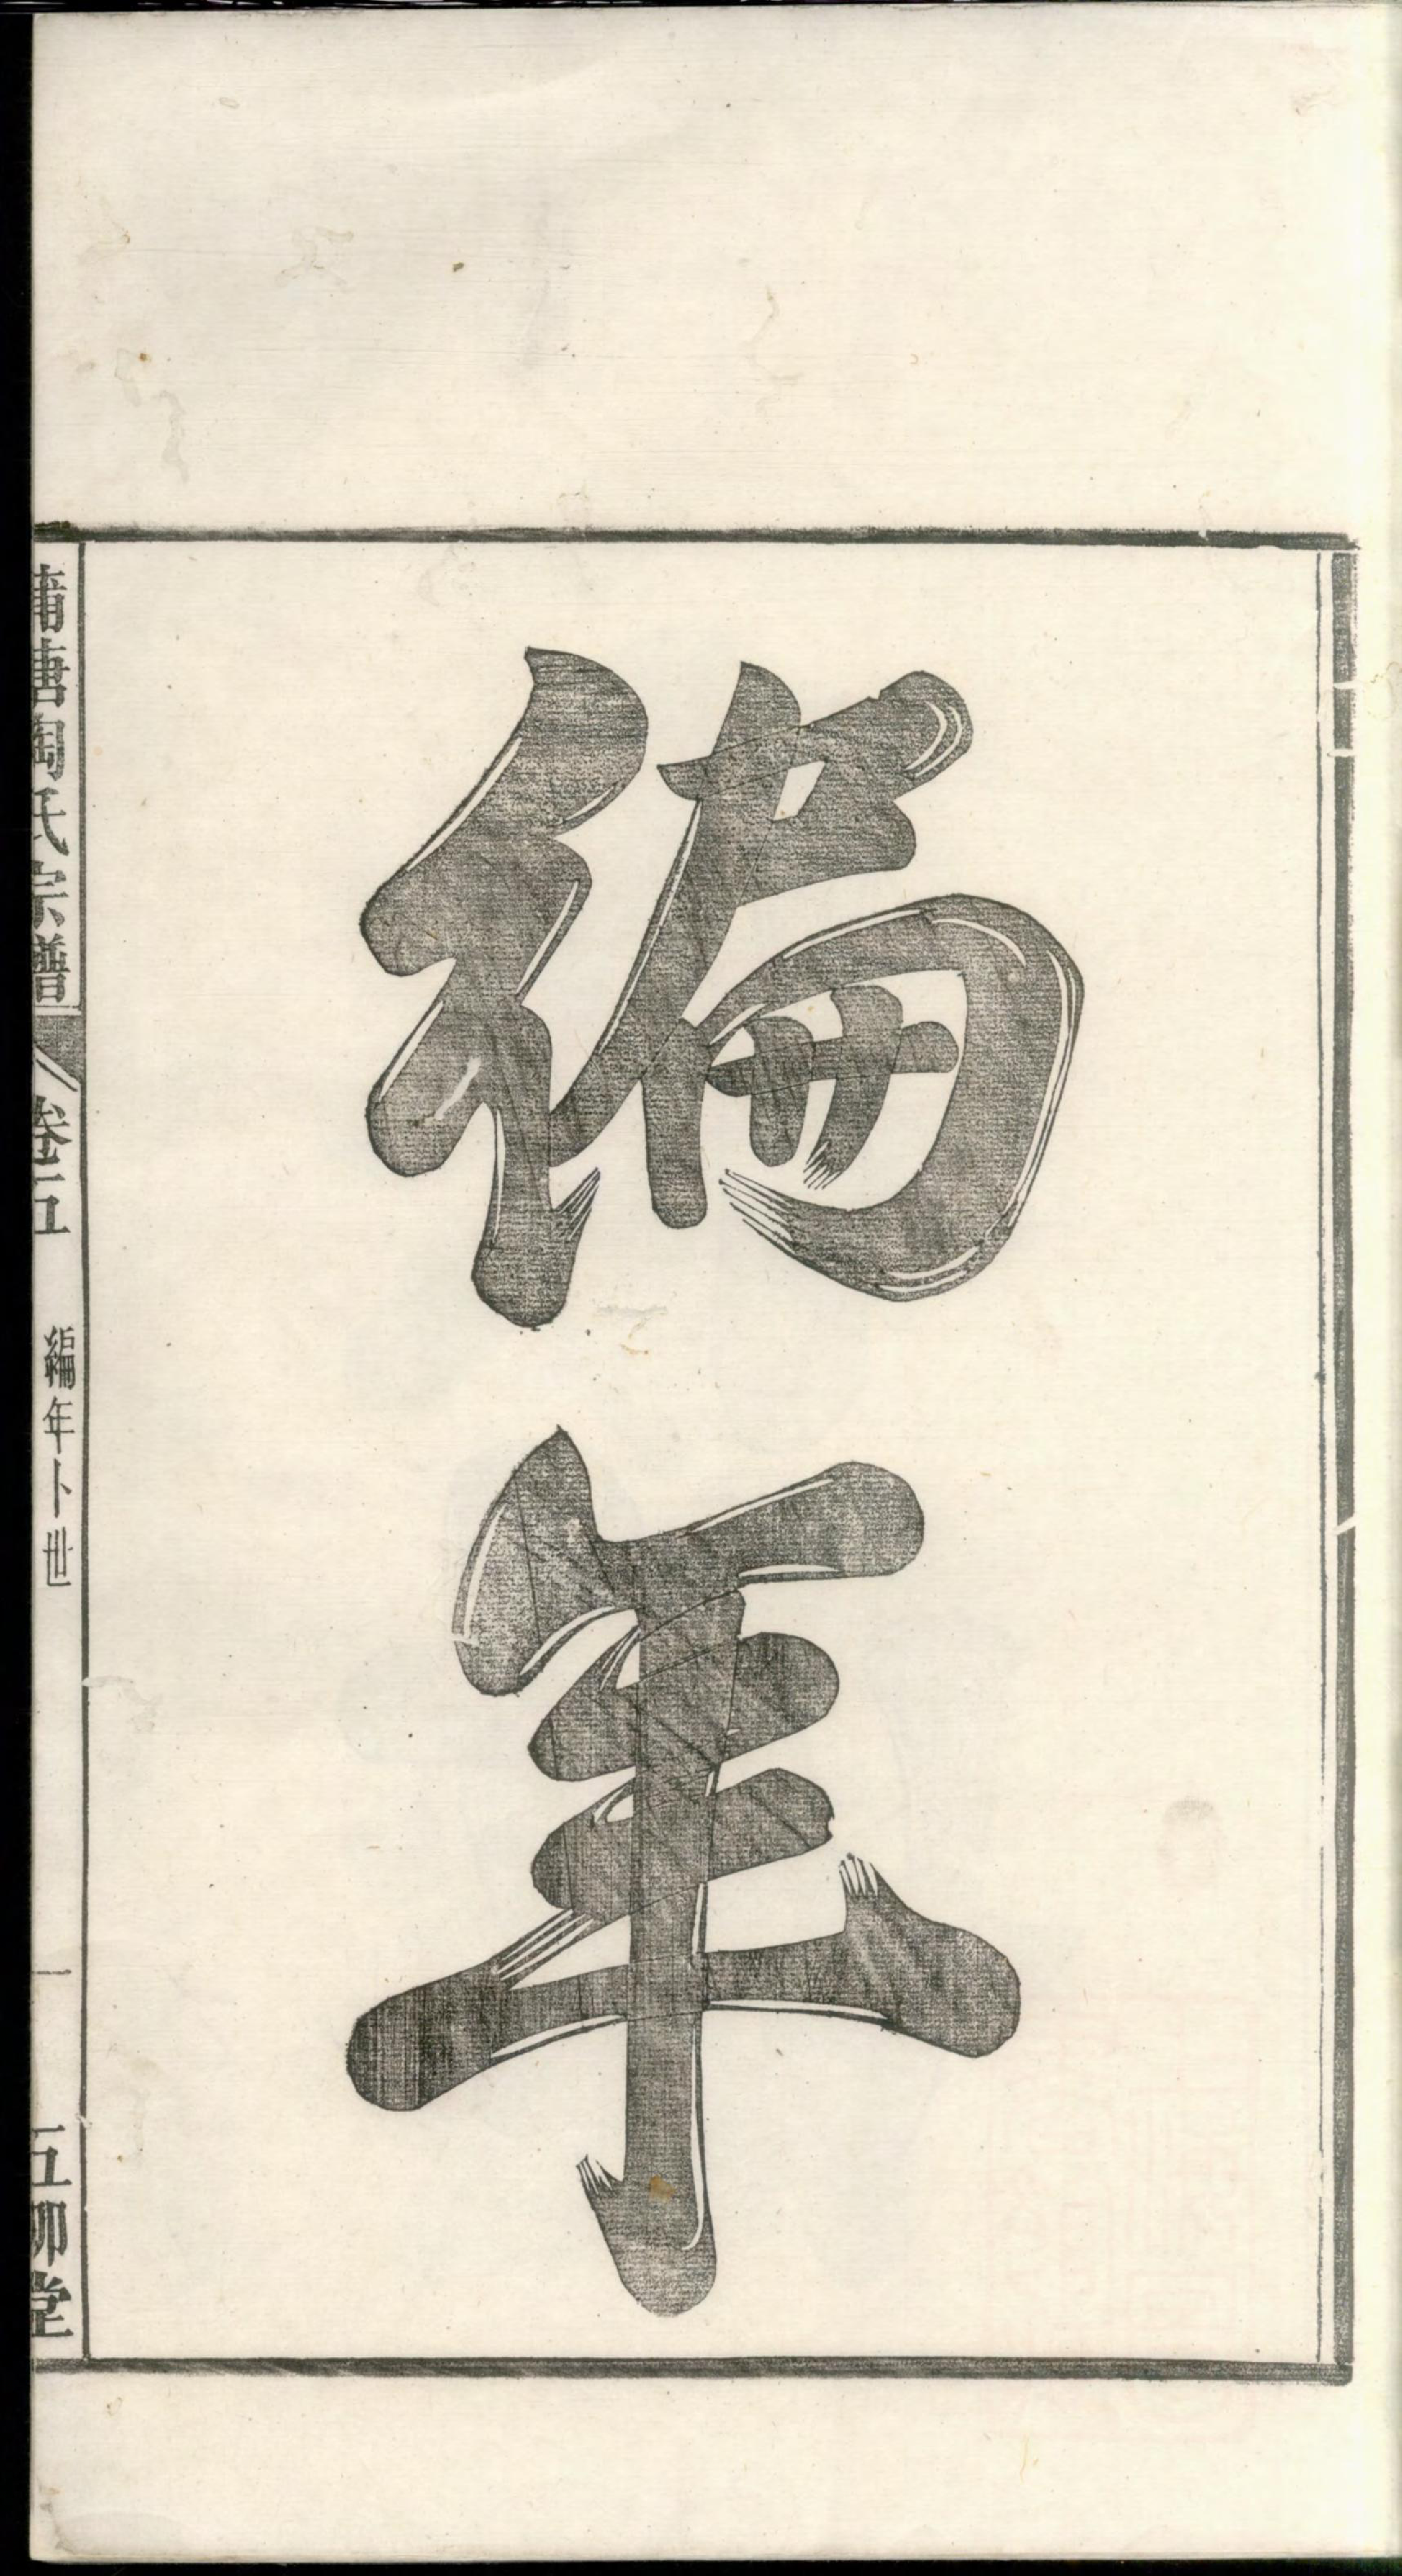 編年
塘陶氏宗譜
卷五
編年卜世
一
五柳堂